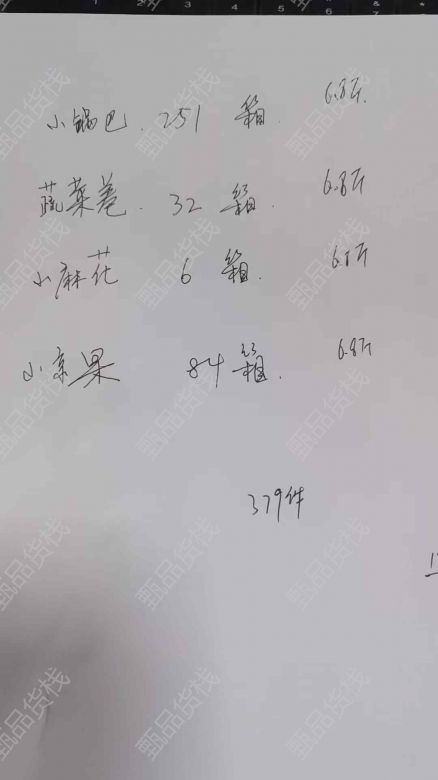 小锅巴. 251 箱. 6.8斤.
蔬菜卷. 32 箱. 6.8斤
小麻花 6 箱. 6.8斤
小京果 84 箱. 6.8斤
379件
甄品货栈